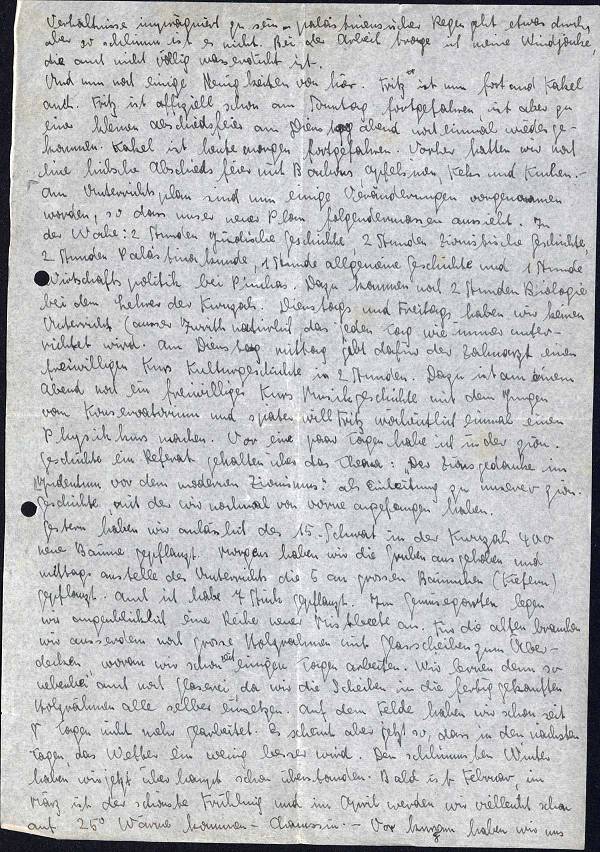 Verhältnisse imprägniert zu sein – palästinensischer Regen geht etwas durch,
aber so schlimm ist es nicht. Bei der Arbeit trage ich meine Windjacke,
die auch nicht völlig wasserdicht ist.
Und nun noch einige Neuigkeiten von hier. Fritz ist nun fort und Kahel
auch. Fritz ist offiziell schon am Sonntag fortgefahren, ist aber zu
einer kleinen Abschiedsfeier am Dienstag abend noch einmal wiederge-
kommen. Kahel ist heute morgen fortgefahren. Vorher hatten wir noch
eine hübsche Abschiedsfeier mit Bonbons, Apfelsinen, Keks und Kuchen. –
Am Unterrichtsplan sind nun einige Veränderungen vorgenommen
worden, so dass unser neuer Plan folgendermassen aussieht. In
der Woche: 2 Stunden jüdische Geschichte, 2 Stunden zionistische Geschichte,
2 Stunden Palästinakunde, 1 Stunde allgemeine Geschichte und 1 Stunde
Wirtschaftspolitik bei Pinchas. Dazu kommen noch 2 Stunden Biologie
bei dem Lehrer der Kwuzah. Dienstags und Freitags haben wir keinen
Unterricht (ausser Iwrith natürlich das jeden Tag wie immer unter-
richtet wird. Am Dienstag mittag gibt dafür der Zahnarzt einen
freiwilligen Kurs Kulturgeschichte in 2 Stunden. Dazu ist am einem
Abend noch ein freiwilliger Kurs Musikgeschichte mit dem Jungen
vom Konservatorium und später will Fritz wöchentlich einmal einen
Physikkurs machen. Vor ein paar Tagen habe ich in der zion.
Geschichte ein Referat gehalten über das Thema: "Der Zionsgedanke im
Judentum vor dem modernen Zionismus" als Einleitung zu unserer zion.
Geschichte, mit der wir nochmal von vorne angefangen haben.
Gestern haben wir anlässlich des 15. Schwat in der Kwuzah 400
neue Bäume gepflanzt. Morgens haben wir die Gruben ausgehoben und
mittags anstelle des Unterrichts die 5 cm grossen Bäumchen (Kiefern)
gepflanzt. Auch ich habe 7 Stück gepflanzt. Im Gemüsegarten legen
wir augenblicklich eine Reihe neuer Mistbeete an. Für die alten brauchen
wir ausserdem noch grosse Holzrahmen mit Glasscheiben zum Über-
decken woran wir schon seit einigen Tagen arbeiten. Wir lernen denn so
nebenbei auch noch Glaserei da wir die Scheiben in die fertig gekauften
Holzrahmen alle selber einsetzen. Auf dem Felde haben wir schon seit
Tagen nicht mehr gearbeitet. Es scheint aber jetzt so, dass in den nächsten
Tagen das Wetter ein wenig besser wird. Den schlimmsten Winter
haben wir jetzt überhaupt schon überstanden. Bald ist Februar, im
März ist der schönste Frühling und im April werden wir vielleicht schon
auf 25° Wärme kommen – Chamssin. – Vor kurzem haben wir uns